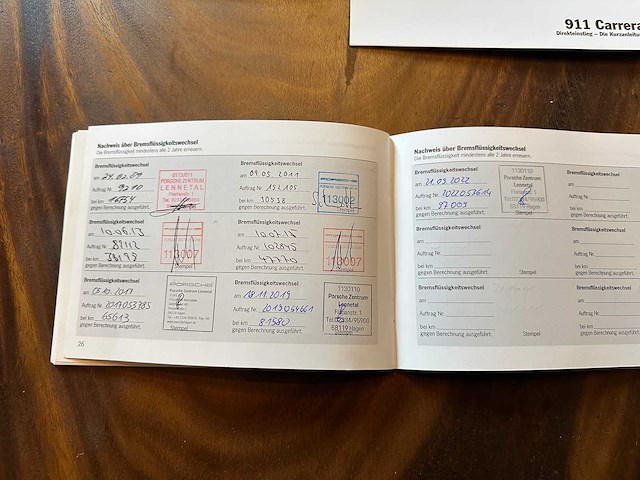 911 Carrera
Direkteinstieg – Die Kurzanleitu
Nachweis über Bremsflüssigkeitswechsel
Die Bremsflüssigkeit mindestens alle 2 Jahre erneuern.
Bremsflüssigkeitswechsel
am 24.02.09
Auftrag Nr. 9210
bei km
gegen Berechnung ausgeführt.
0113/011
PORSCHE ZENTRUM
LENNETAL
Bremsflüssigkeitswechsel
am 09.05.2011
Auftrag Nr.
bei km 30538
gegen Berechnung ausgeführt.
113002
Stempel
Bremsflüssigkeitswechsel
am 10.06.13
Auftrag Nr. 87112
bei km
gegen Berechnung ausgeführt.
113007
Stempel
Bremsflüssigkeitswechsel
am 10.07.15
Auftrag Nr. 102845
bei km 47770
gegen Berechnung ausgeführt.
113007
Stempel
Bremsflüssigkeitswechsel
am 05.10.2017
Auftrag Nr. 2017053785
bei km 65613
gegen Berechnung ausgeführt.
PORSCHE
Porsche Zentrum Lennetal
Stempel
Bremsflüssigkeitswechsel
am 08.11.2019
Auftrag Nr. 2019064661
bei km 81580
gegen Berechnung ausgeführt.
1130110
Porsche Zentrum
Lennetal
58119 Hagen
Stempel
26
Nachweis über Bremsflüssigkeitswechsel
Die Bremsflüssigkeit mindestens alle 2 Jahre erneuern.
Bremsflüssigkeitswechsel
am 21.09.2022
Auftrag Nr. 2022053614
bei km 97009
gegen Berechnung ausgeführt.
1130110
Porsche Zentrum
Lennetal
58119 Hagen
Stempel
Bremsflüssigkeitswechsel
am
Auftrag Nr.
bei km
gegen Berechnung ausgeführt.
Bremsflüssigkeitswechsel
am
Auftrag Nr.
bei km
gegen Berechnung ausgeführt.
Stempel
Bremsflüssigkeitswechsel
am
Auftrag Nr.
bei km
gegen Berechnung ausgeführt.
Bremsflüssigkeitswechsel
am
Auftrag Nr.
bei km
gegen Berechnung ausgeführt.
Stempel
Bremsflüssigkeitswechsel
am
Auftrag Nr.
bei km
gegen Berechnung ausgeführt.